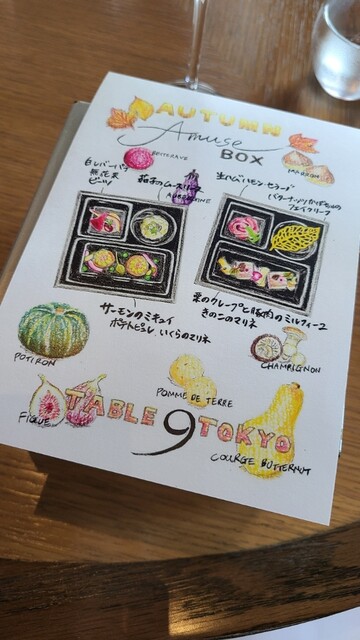 AUTUMN
Amuse
BOX
BETTRAVE
MARRON
白レバーパテ
無花果
ビーツ
茄子のムースリーヌ
AUBERGINE
生ハムハモン・セラーノ
バターナッツかぼちゃの
フェイクリーフ
サーモンのミキュイ
ポテトピュレ いくらのマリネ
栗のクレープと豚肉のミルフィーユ
きのこのマリネ
POTIRON
CHAMPIGNON
POMME DE TERRE
FIGUE
TABLE 9 TOKYO
COURGE BUTTERNUT